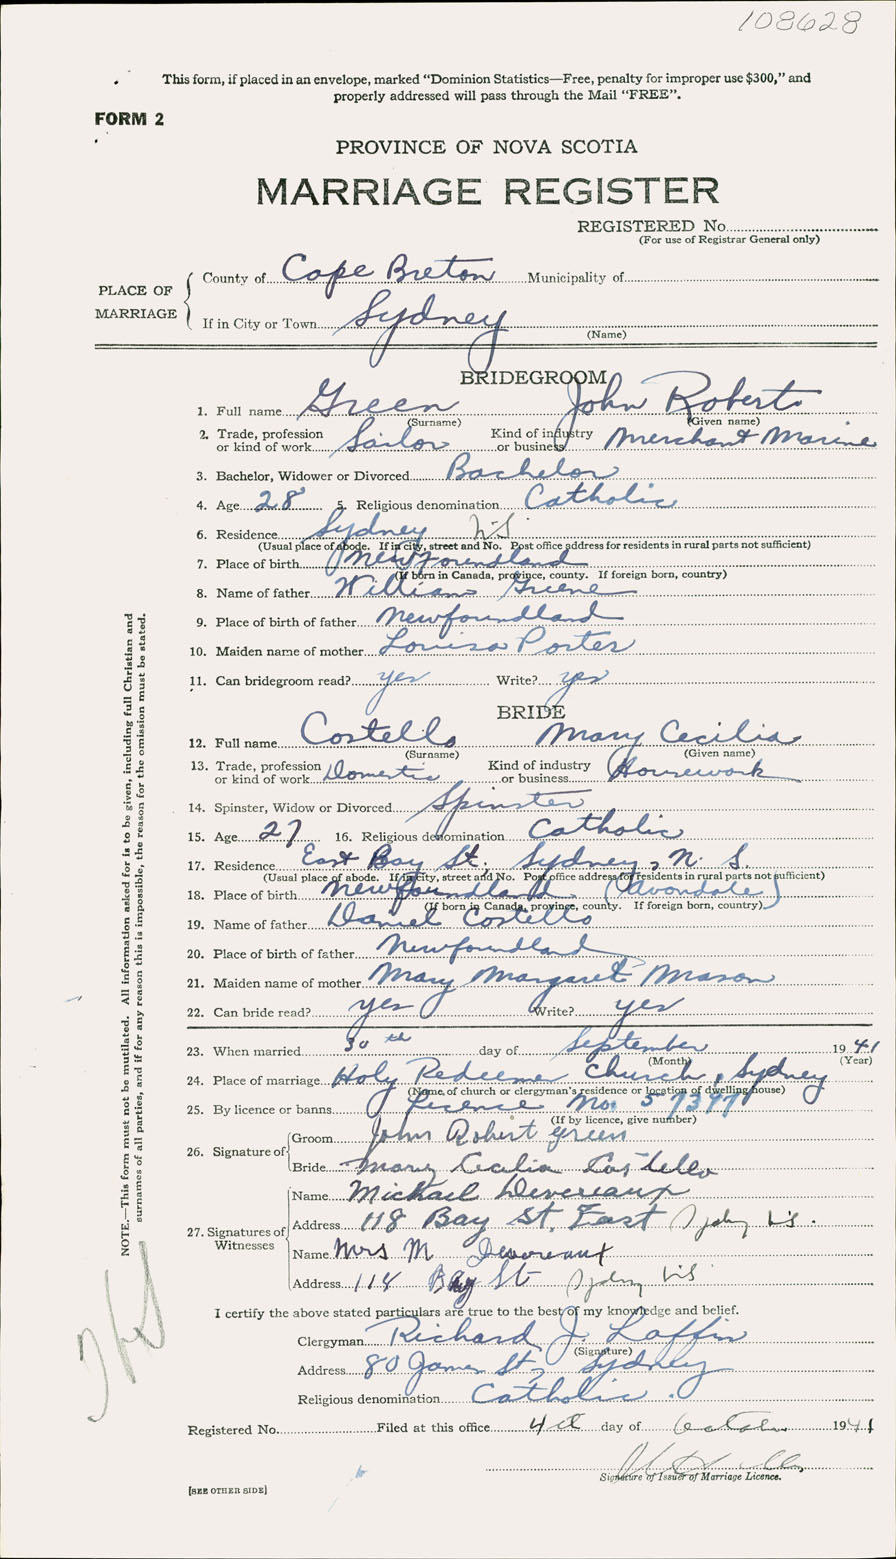 108628
This form, if placed in an envelope, marked “Dominion Statistics—Free, penalty for improper use $300,” and
properly addressed will pass through the Mail “FREE”.
FORM 2
PROVINCE OF NOVA SCOTIA
MARRIAGE REGISTER
REGISTERED No.
(For use of Registrar General only)
PLACE OF MARRIAGE
County of Cape Breton Municipality of
If in City or Town Sydney
(Name)
BRIDEGROOM
1. Full name Green John Robert
(Surname) (Given name)
2. Trade, profession or kind of work Sailor Kind of industry or business Merchant Marine
3. Bachelor, Widower or Divorced Bachelor
4. Age 28 5. Religious denomination Catholic
6. Residence Sydney NS
(Usual place of abode. If in city, street and No. Post office address for residents in rural parts not sufficient)
7. Place of birth Newfoundland
(If born in Canada, province, county. If foreign born, country)
8. Name of father William Greene
9. Place of birth of father Newfoundland
10. Maiden name of mother Louisa Porter
11. Can bridegroom read? yes Write? yes
BRIDE
12. Full name Costello Mary Cecilia
(Surname) (Given name)
13. Trade, profession or kind of work Domestic Kind of industry or business Housework
14. Spinster, Widow or Divorced Spinster
15. Age 27 16. Religious denomination Catholic
17. Residence East Bay St. Sydney, N. S.
(Usual place of abode. If in city, street and No. Post office address for residents in rural parts not sufficient)
18. Place of birth Newfoundland (Avondale)
(If born in Canada, province, county. If foreign born, country)
19. Name of father Daniel Costello
20. Place of birth of father Newfoundland
21. Maiden name of mother Mary Margaret Mason
22. Can bride read? yes Write? yes
23. When married 30th day of September 1941
(Month) (Year)
24. Place of marriage Holy Redeemer Church, Sydney
(Name of church or clergyman's residence or location of dwelling house)
25. By licence or banns Licence No. 57397
(If by licence, give number)
26. Signature of
Groom John Robert Green
Bride Mary Cecilia Costello
27. Signatures of Witnesses
Name Michael Devereaux
Address 118 Bay St, East Sydney NS.
Name Mrs M Devereaux
Address 114 Bay St Sydney NS
I certify the above stated particulars are true to the best of my knowledge and belief.
Clergyman Richard J. Laffin
(Signature)
Address 80 James St, Sydney
Religious denomination Catholic.
Registered No. Filed at this office 4th day of October 1941
Signature of Issuer of Marriage Licence.
[SEE OTHER SIDE]
NOTE.—This form must not be mutilated. All information asked for is to be given, including full Christian and
surnames of all parties, and if for any reason this is impossible, the reason for the omission must be stated.